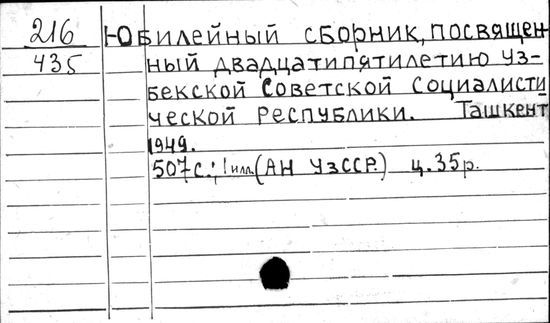 216
435
Юбилейный сборник, посвящен-
ный двадцатипятилетию Уз-
бекской Советской Социалисти
ческой Республики. Ташкент
1949.
507с.; 1 илл. (АН УзССР.) ц. 35р.